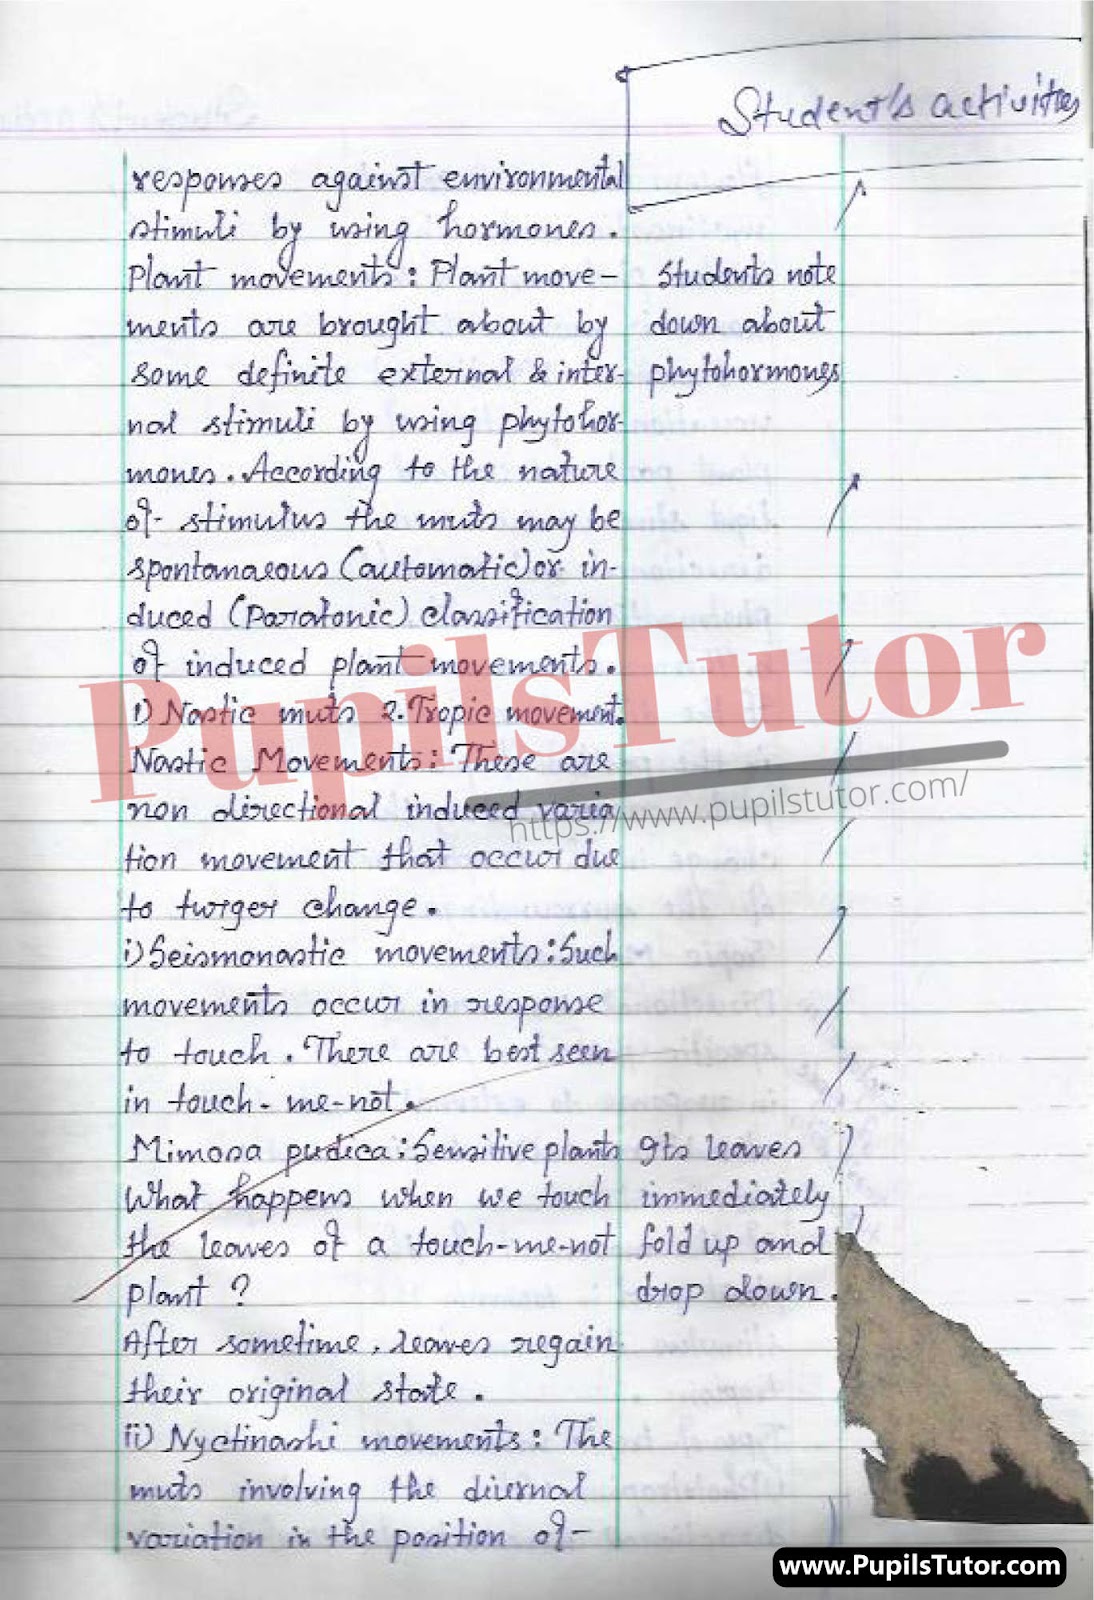 Student's activities
responses against environmental
stimuli by using hormones.
Plant movements: Plant move-
ments are brought about by
some definite external & inter-
nal stimuli by using phytohor-
mones. According to the nature
of stimulus the muts may be
spontanaeous (automatic) or in-
duced (Paratonic) classification
of induced plant movements.
i) Nastic muts 2. Tropic movement.
Nastic Movements: These are
non directional induced varia
tion movement that occur due
to turger change.
i) Seismonastic movements: Such
movements occur in response
to touch. There are best seen
in touch-me-not.
Mimosa pudica: Sensitive plants
What happens when we touch
the leaves of a touch-me-not
plant?
After sometime, leaves regain
their original state.
ii) Nyctinashi movements: The
muts involving the diurnal
variation in the position of-
Students note
down about
phytohormones
Its leaves
immediately
fold up and
drop down.
PupilsTutor
https://www.pupilstutor.com/
www.PupilsTutor.com